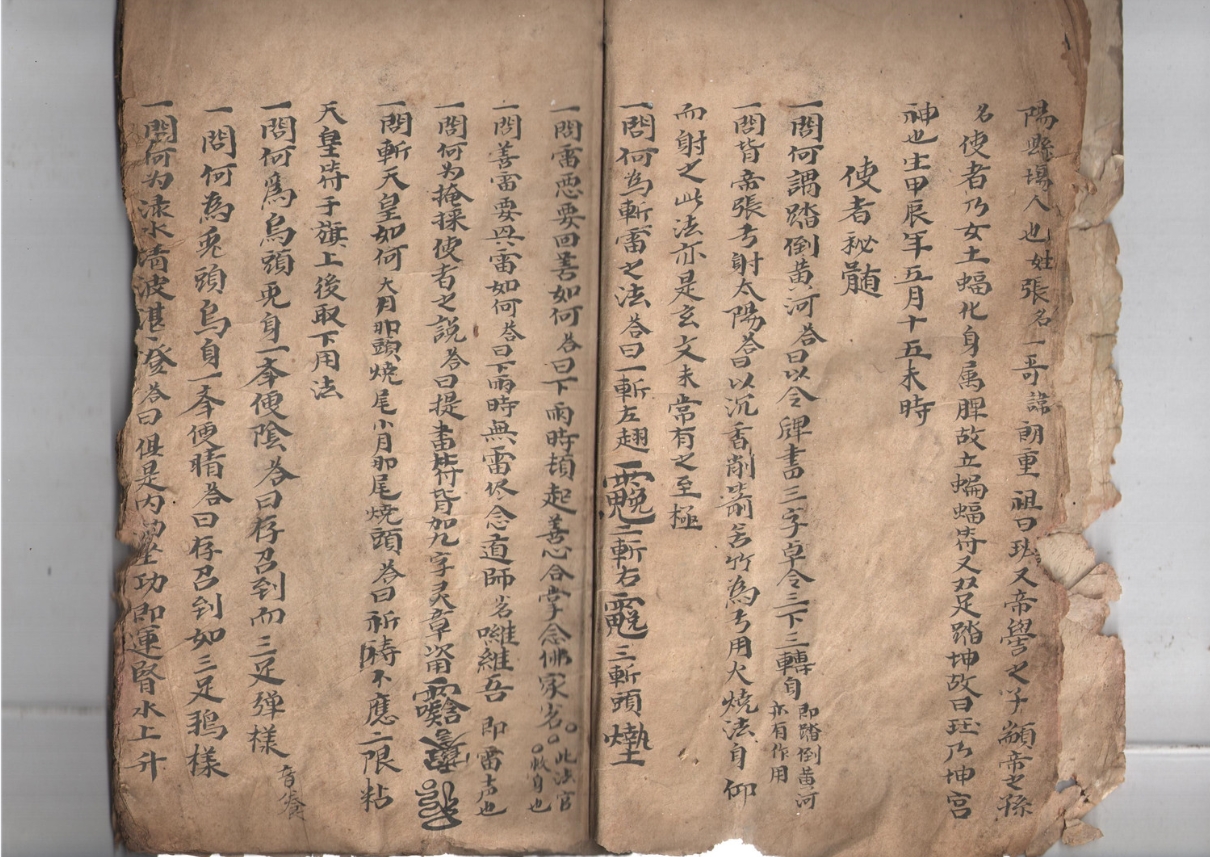 陽縣場人也姓張名一哥諱朗重祖曰珐又帝嚳之子顓帝之孫
名使者乃女土蝠化身属脾故立蝙蝠符又足踏坤故曰珏乃坤宮
神也生甲辰年五月十五未時
使者秘髄
一問何謂踏倒黄河答曰以令牌書三字卓令三下三轉身即踏倒黄河亦有作用
一問皆帝張弓射太陽答曰以沉香削箭苦竹為弓用火燒法自仰
而射之此法亦是玄文未常有之至極
一問何為斬雷之法答曰一斬左翅二斬右三斬頭
一問雷悪要回善如何答曰下雨時頓起善心合掌念佛家此法官救自也
一問善雷要異雷如何答曰下雨時無雷伱念道師維吾即雷者也
一問何为掩採使者之說答曰提畫符背如九字灵章
一問斬天皇如何大月那頭燒尾小月那尾燒頭答曰祈禱不應二限粘
天皇符于旗上後取下用法
一問何為烏頭兎身一奉便陰答曰存召到而三足弹樣
一問何為兎頭烏身一奉便晴答曰存召到如三足鴉樣
一問何为涤水清波湛登答曰但是内功即運腎水上升